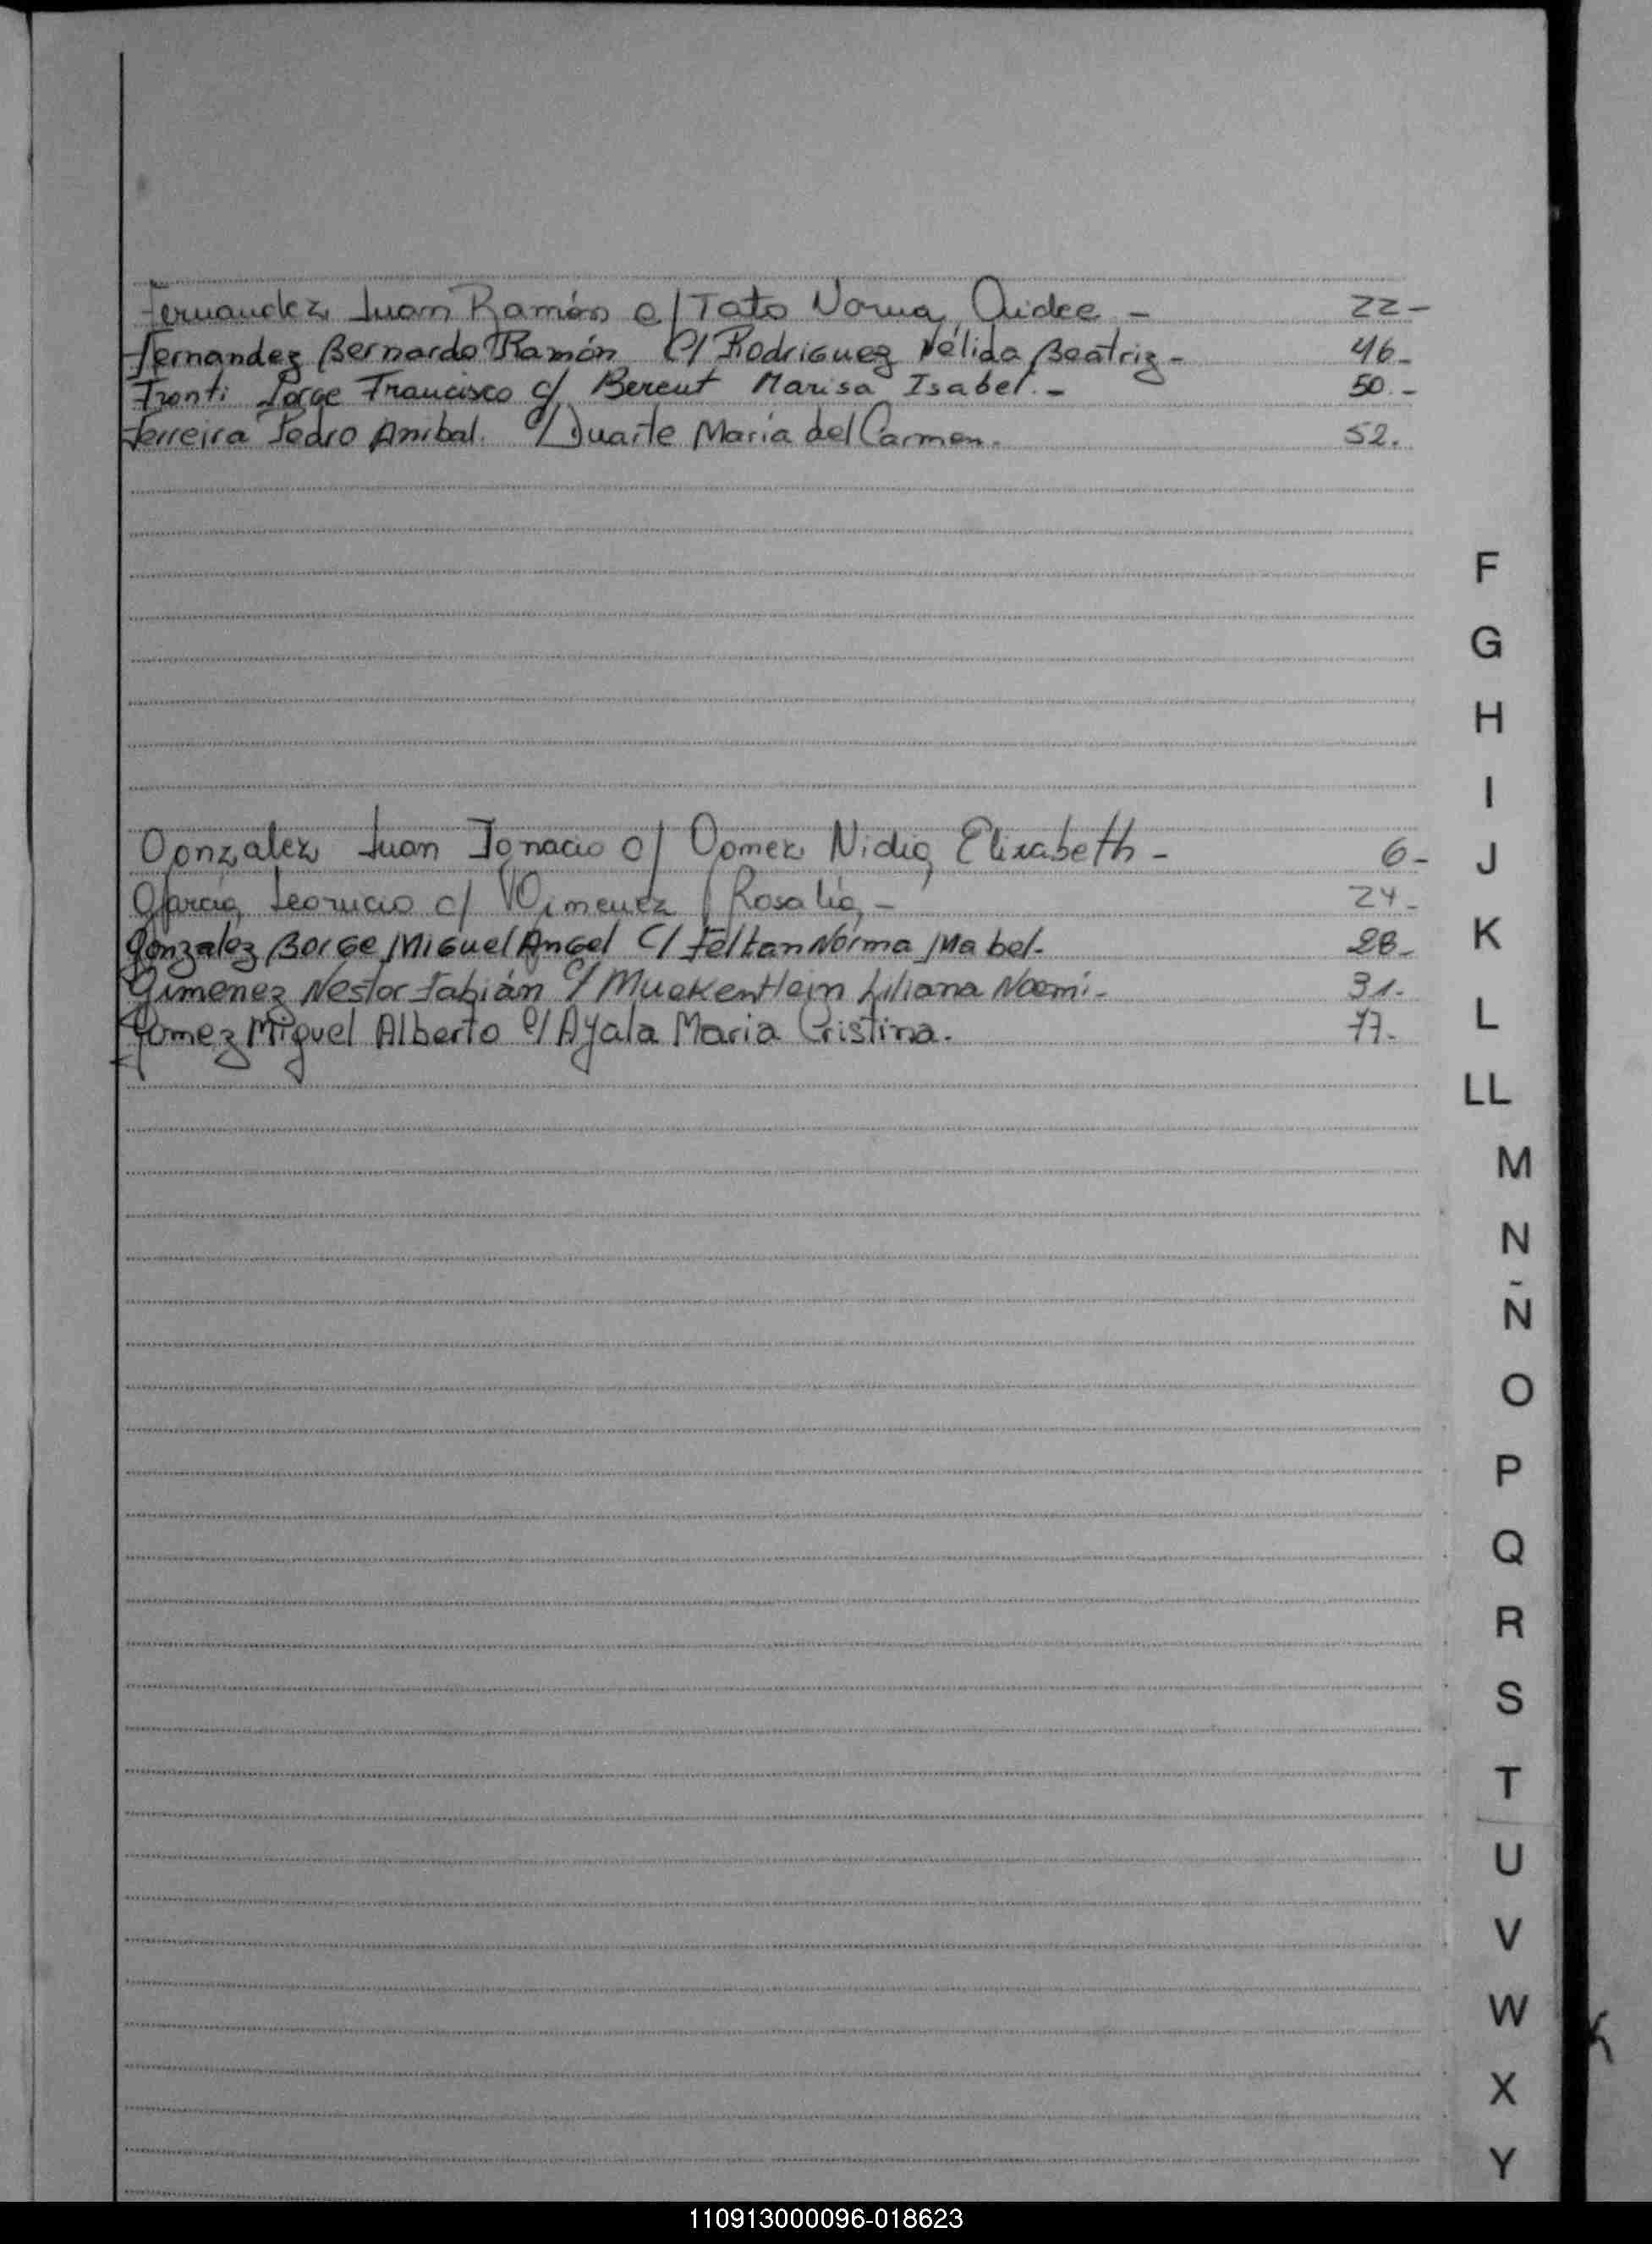 Fernandez Juan Ramón c/ Tato Norma Aidee - 22-
Fernandez Bernardo Ramón C/ Rodriguez Nélida Beatriz- 46-
Fronti Jorge Francisco c/ Bereut Marisa Isabel.- 50.-
Ferreira Pedro Anibal. C/ Duarte Maria del Carmen. 52.
F
G
H
I
Gonzalez Juan Ignacio c/ Gomez Nidia Elizabeth- 6-
J
Garcia Leoncio c/ Gimenez Rosalia,- 24-
Gonzalez Borge Miguel Angel C/ Feltan Norma Mabel. 28-
K
Gimenez Néstor Fabián C/ Muekentlein Liliana Noemi- 31.
L
Gomez Miguel Alberto C/ Ayala Maria Cristina. 77-
LL
M
N
Ñ
O
P
Q
R
S
T
U
V
W
X
Y
110913000096-018623